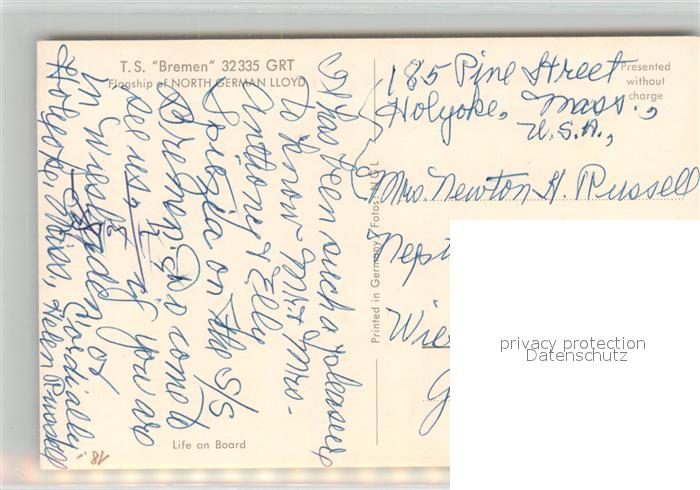 T.S. "Bremen" 32335 GRT
Flagship of NORTH GERMAN LLOYD
It has been such a pleasure
to know Mr. + Mrs.
Anthony + Elly
Spezia on the S/S
Bremen. Do come to
see us, if you are
in
Cordially,
Holyoke, Mass, Helen Russell
Life on Board
18.
Printed in Germany / Fotos: NGL
Presented
without
charge
185 Pine Street
Holyoke, Mass.,
U.S.A.,
Mrs. Newton H. Russell
privacy protection
Datenschutz